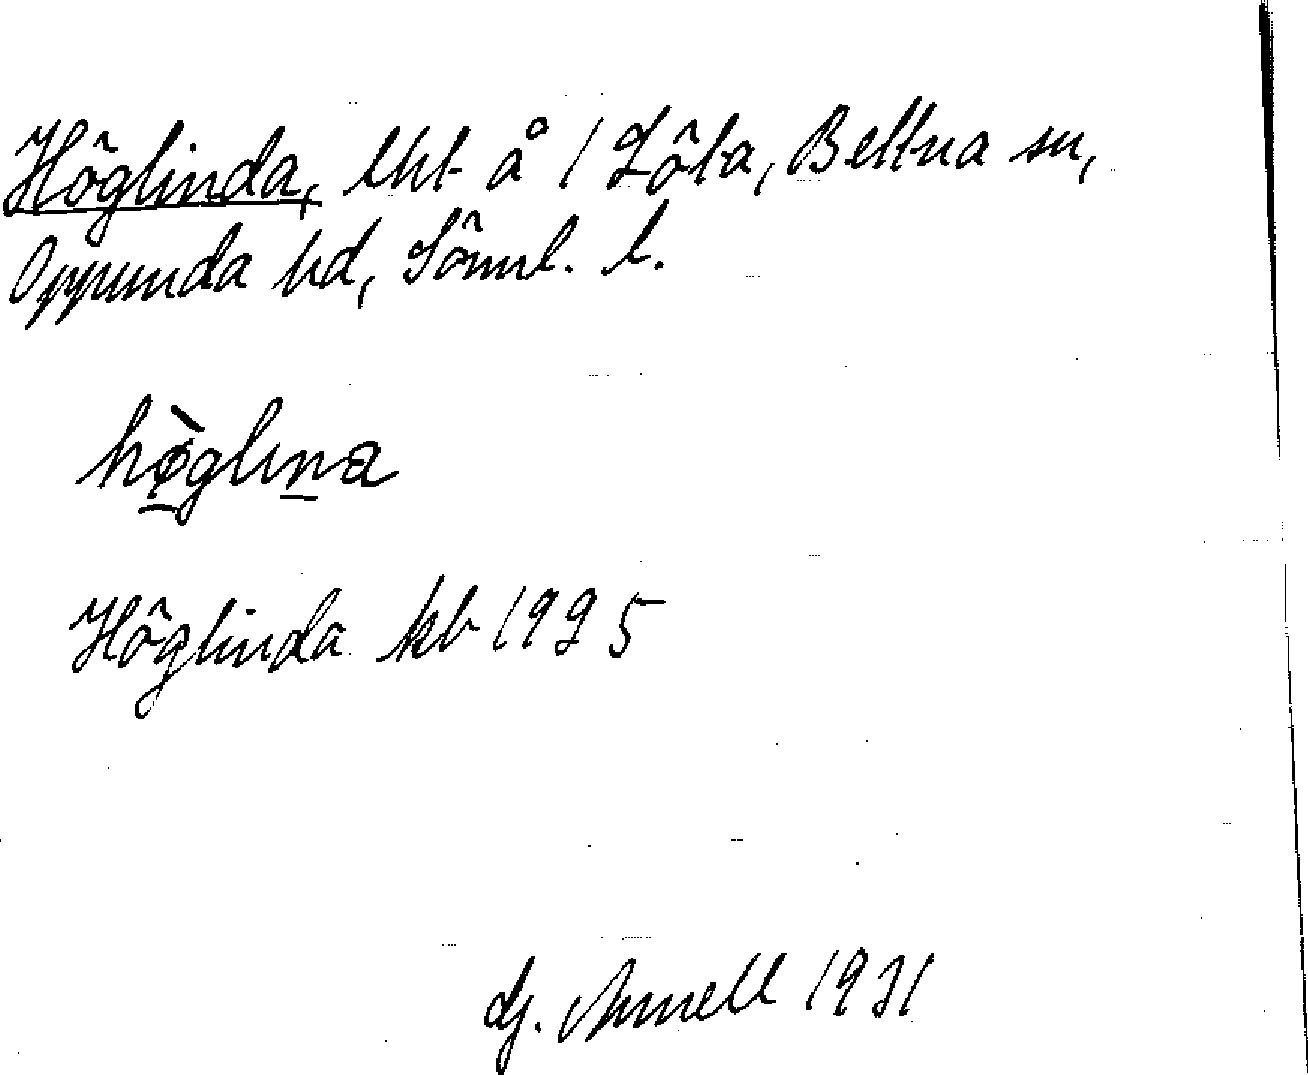 Höglinda, lht å 1 Löta, Bettna sn,
Oppunda hd, Söml. l.
hø̀glιna
Höglinda kb 1925
Hj. Annell 1931